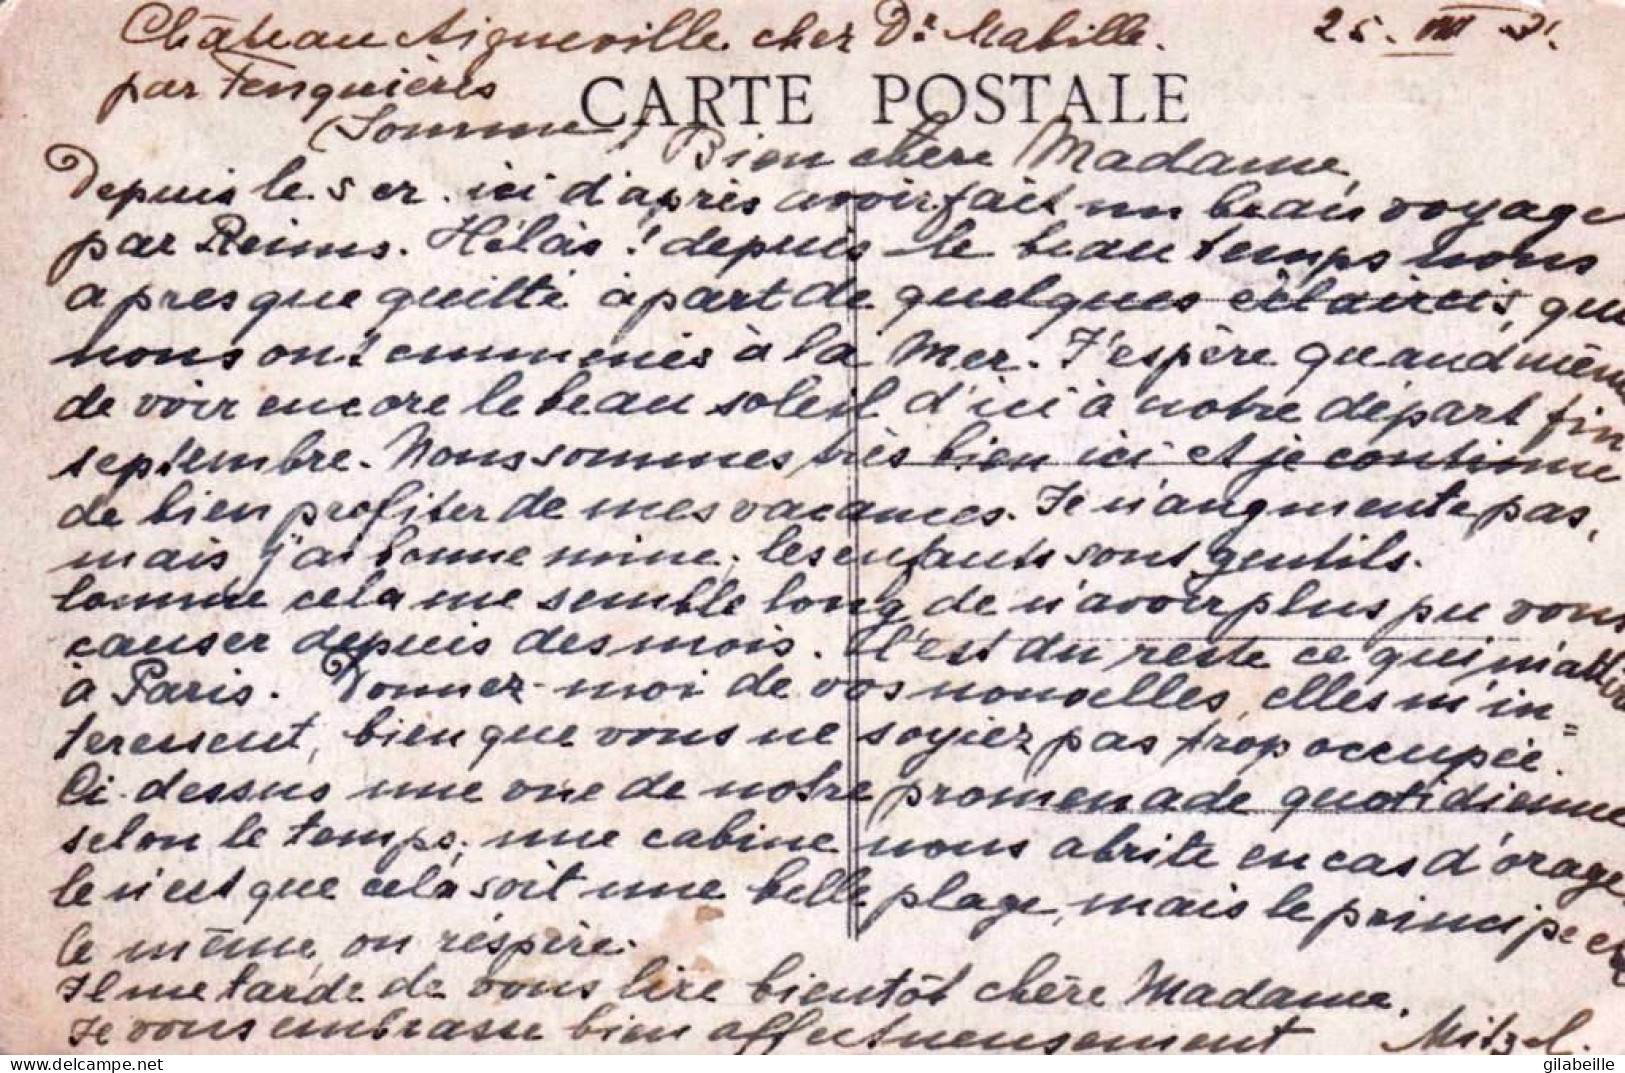 Château Aigueville chez Dr Mabille. 25. VIII 31.
par Fenquières
CARTE POSTALE
(Somme)
Bien chère Madame,
Depuis le 5 cr. ici d'après avoir fait un beau voyage
par Reims. Hélas! depuis le beau temps nous
a presque quitté à part de quelques éclaircis, qui
nous ont emmenés à la mer. J'espère quand même
de voir encore le beau soleil d'ici à notre départ fin
septembre. Nous sommes très bien ici et je continue
de bien profiter de mes vacances. Je n'augmente pas,
mais j'ai bonne mine, les enfants sont gentils.
Comme cela me semble long de n'avoir plus pu vous
causer depuis des mois. C'est du reste ce qui m'attire
à Paris. Donnez-moi de vos nouvelles, elles m'in=
teressent, bien que vous ne soyiez pas trop occupée.
Ci-dessus une vue de notre promenade quotidienne
selon le temps; une cabine nous abrite en cas d'orage.
Ce n'est que cela soit une belle plage, mais le principe est
le même, on réspire.
Il me tarde de vous lire bientôt chère Madame.
Je vous embrasse bien affectueusement Mitzel.
© delcampe.net
gilabeille